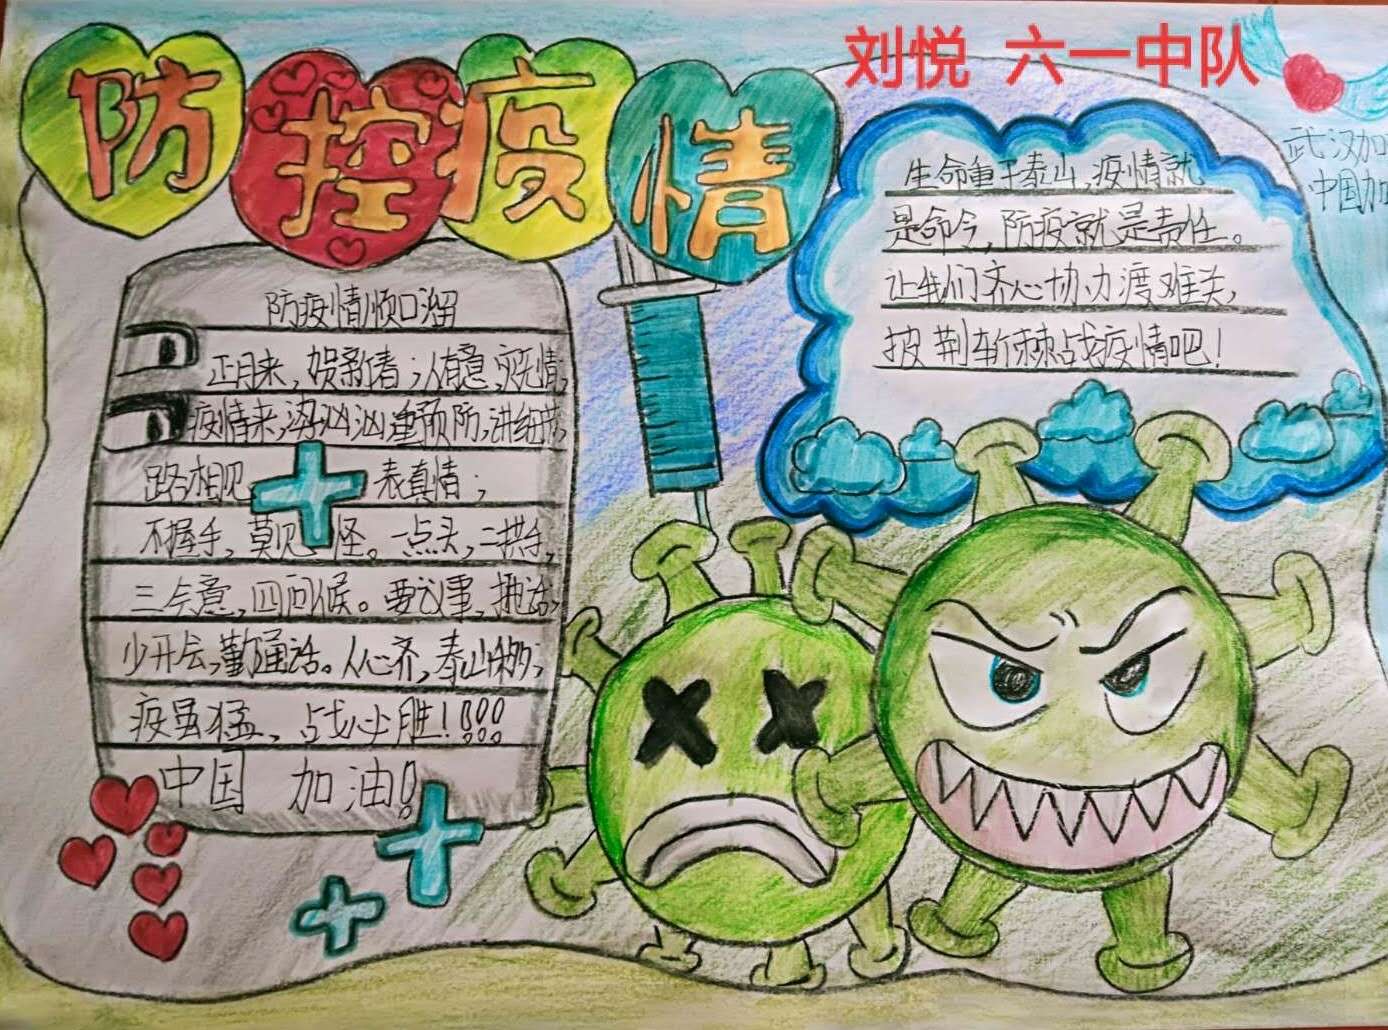 刘悦 六一中队
防控疫情
武汉加
中国加
生命重于泰山,疫情就
是命令,防疫就是责任。
让我们齐心协力渡难关,
披荆斩棘战疫情吧!
防疫情顺口溜
正月来,贺新春;人有意,灾无情;
疫情来,汹汹重预防,讲细节,
路相见 表真情;
不握手,莫见怪。一点头,二拱手,
三会意,四问候。要议事,
少开会,勤通话。人心齐,泰山移;
疫虽猛,战必胜!!!!
中国 加油!